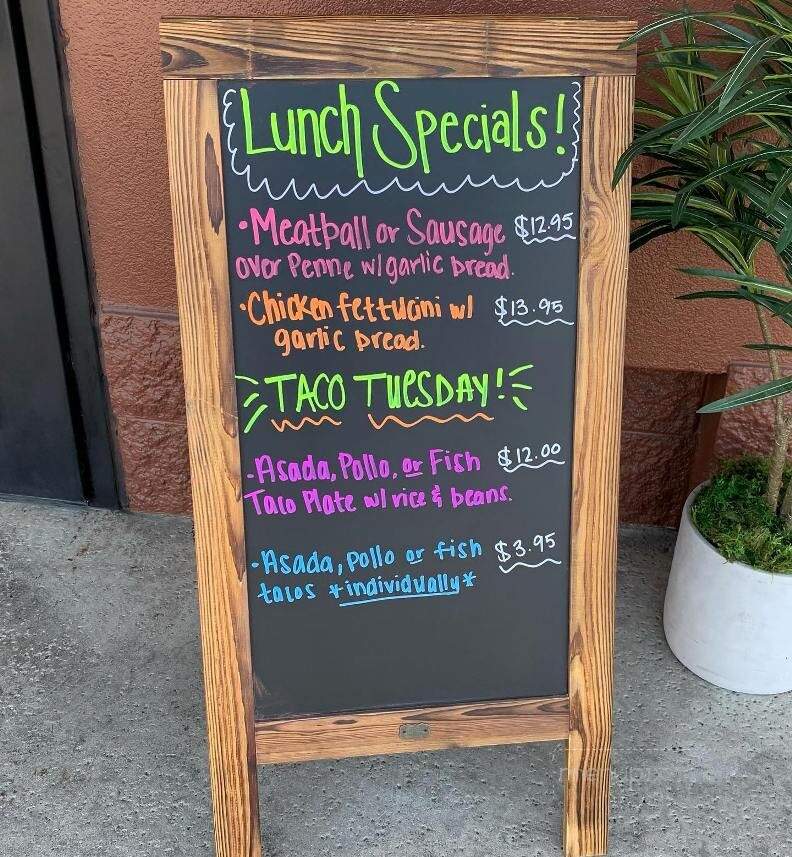 Lunch Specials!
• Meatball or Sausage $12.95
over Penne w/ garlic bread.
• Chicken fettucini w/ $13.95
garlic bread.
TACO TUESDAY!
• Asada, Pollo, or Fish $12.00
Taco Plate w/ rice & beans.
• Asada, pollo or fish $3.95
tacos *individually*